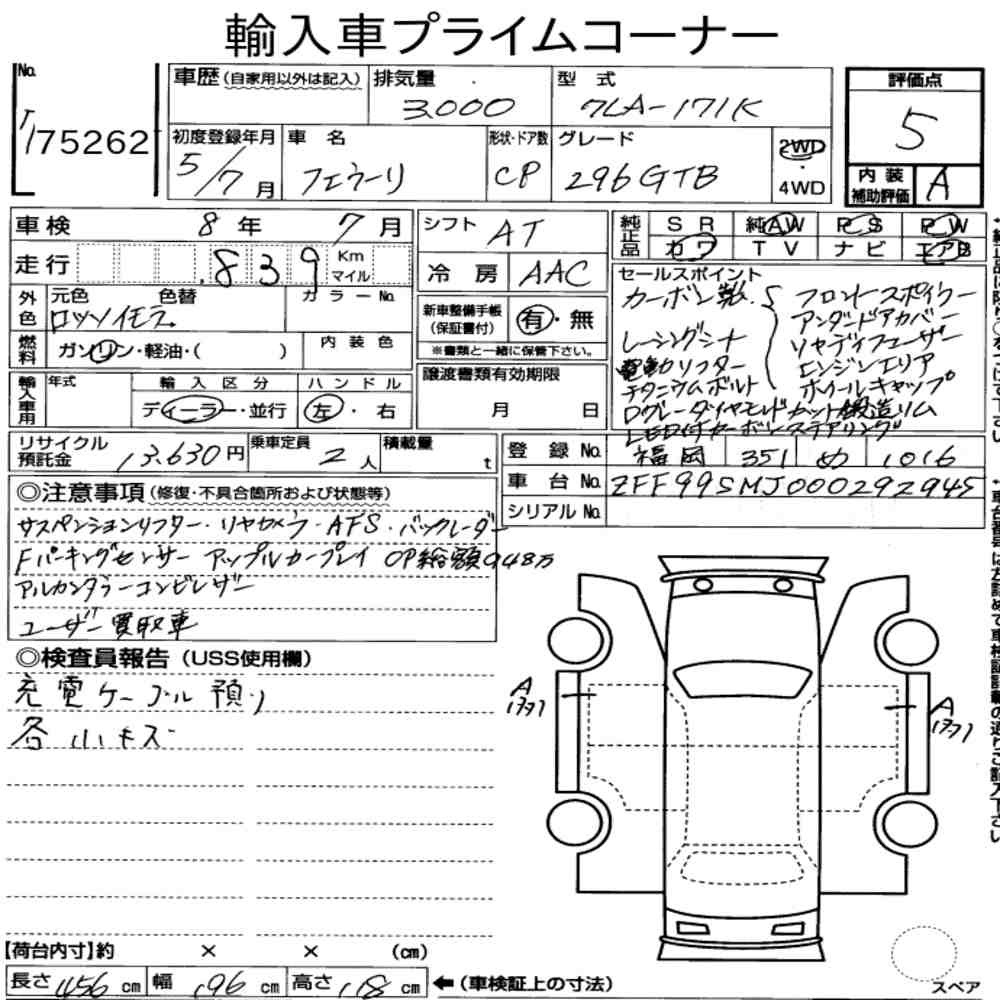 輸入車プライムコーナー
No. 75262
車歴 (自家用以外は記入)
排気量 3.000
型式 7LA-171K
評価点 5
内装補助評価 A
初度登録年月 5/7月
車名 フェラーリ
形状・ドア数 CP
グレード 296GTB
2WD・4WD
車検 8年 7月
シフト AT
純正品 SR 純AW PS PW
カワ TV ナビ エアB
走行 839 Km マイル
冷房 AAC
外色 元色 色替 カラーNo.
ロッソイモラ
新車整備手帳(保証書付) 有・無
※書類と一緒に保管下さい。
燃料 ガソリン・軽油・( ) 内装色
譲渡書類有効期限 月 日
輸入車用 年式 輸入区分 ハンドル
ディーラー・並行 左・右
セールスポイント
カーボン製 フロントスポイラー
アンダードアカバー
レーシングシート リヤディフューザー
電動リフター エンジンエリア
チタニウムボルト ホイールキャップ
ログレーダイヤモンドカット鍛造リム
LED付カーボンステアリング
リサイクル預託金 13.630円
乗車定員 2人
積載量 t
登録No. 福岡 351 め 1016
車台No. ZFF99SMJ000292945
シリアルNo.
◎注意事項 (修復・不具合箇所および状態等)
サスペンションリフター・リヤカメラ・AFS・バックレーダー
Fパーキングセンサー アップルカープレイ OP総額948万
アルカンターラコンビレザー
ユーザー買取車
◎検査員報告 (USS使用欄)
充電ケーブル預り
各小キズ
A
A
【荷台内寸】約 × × (cm)
長さ 456 cm 幅 196 cm 高さ 118 cm ←(車検証上の寸法)
スペア